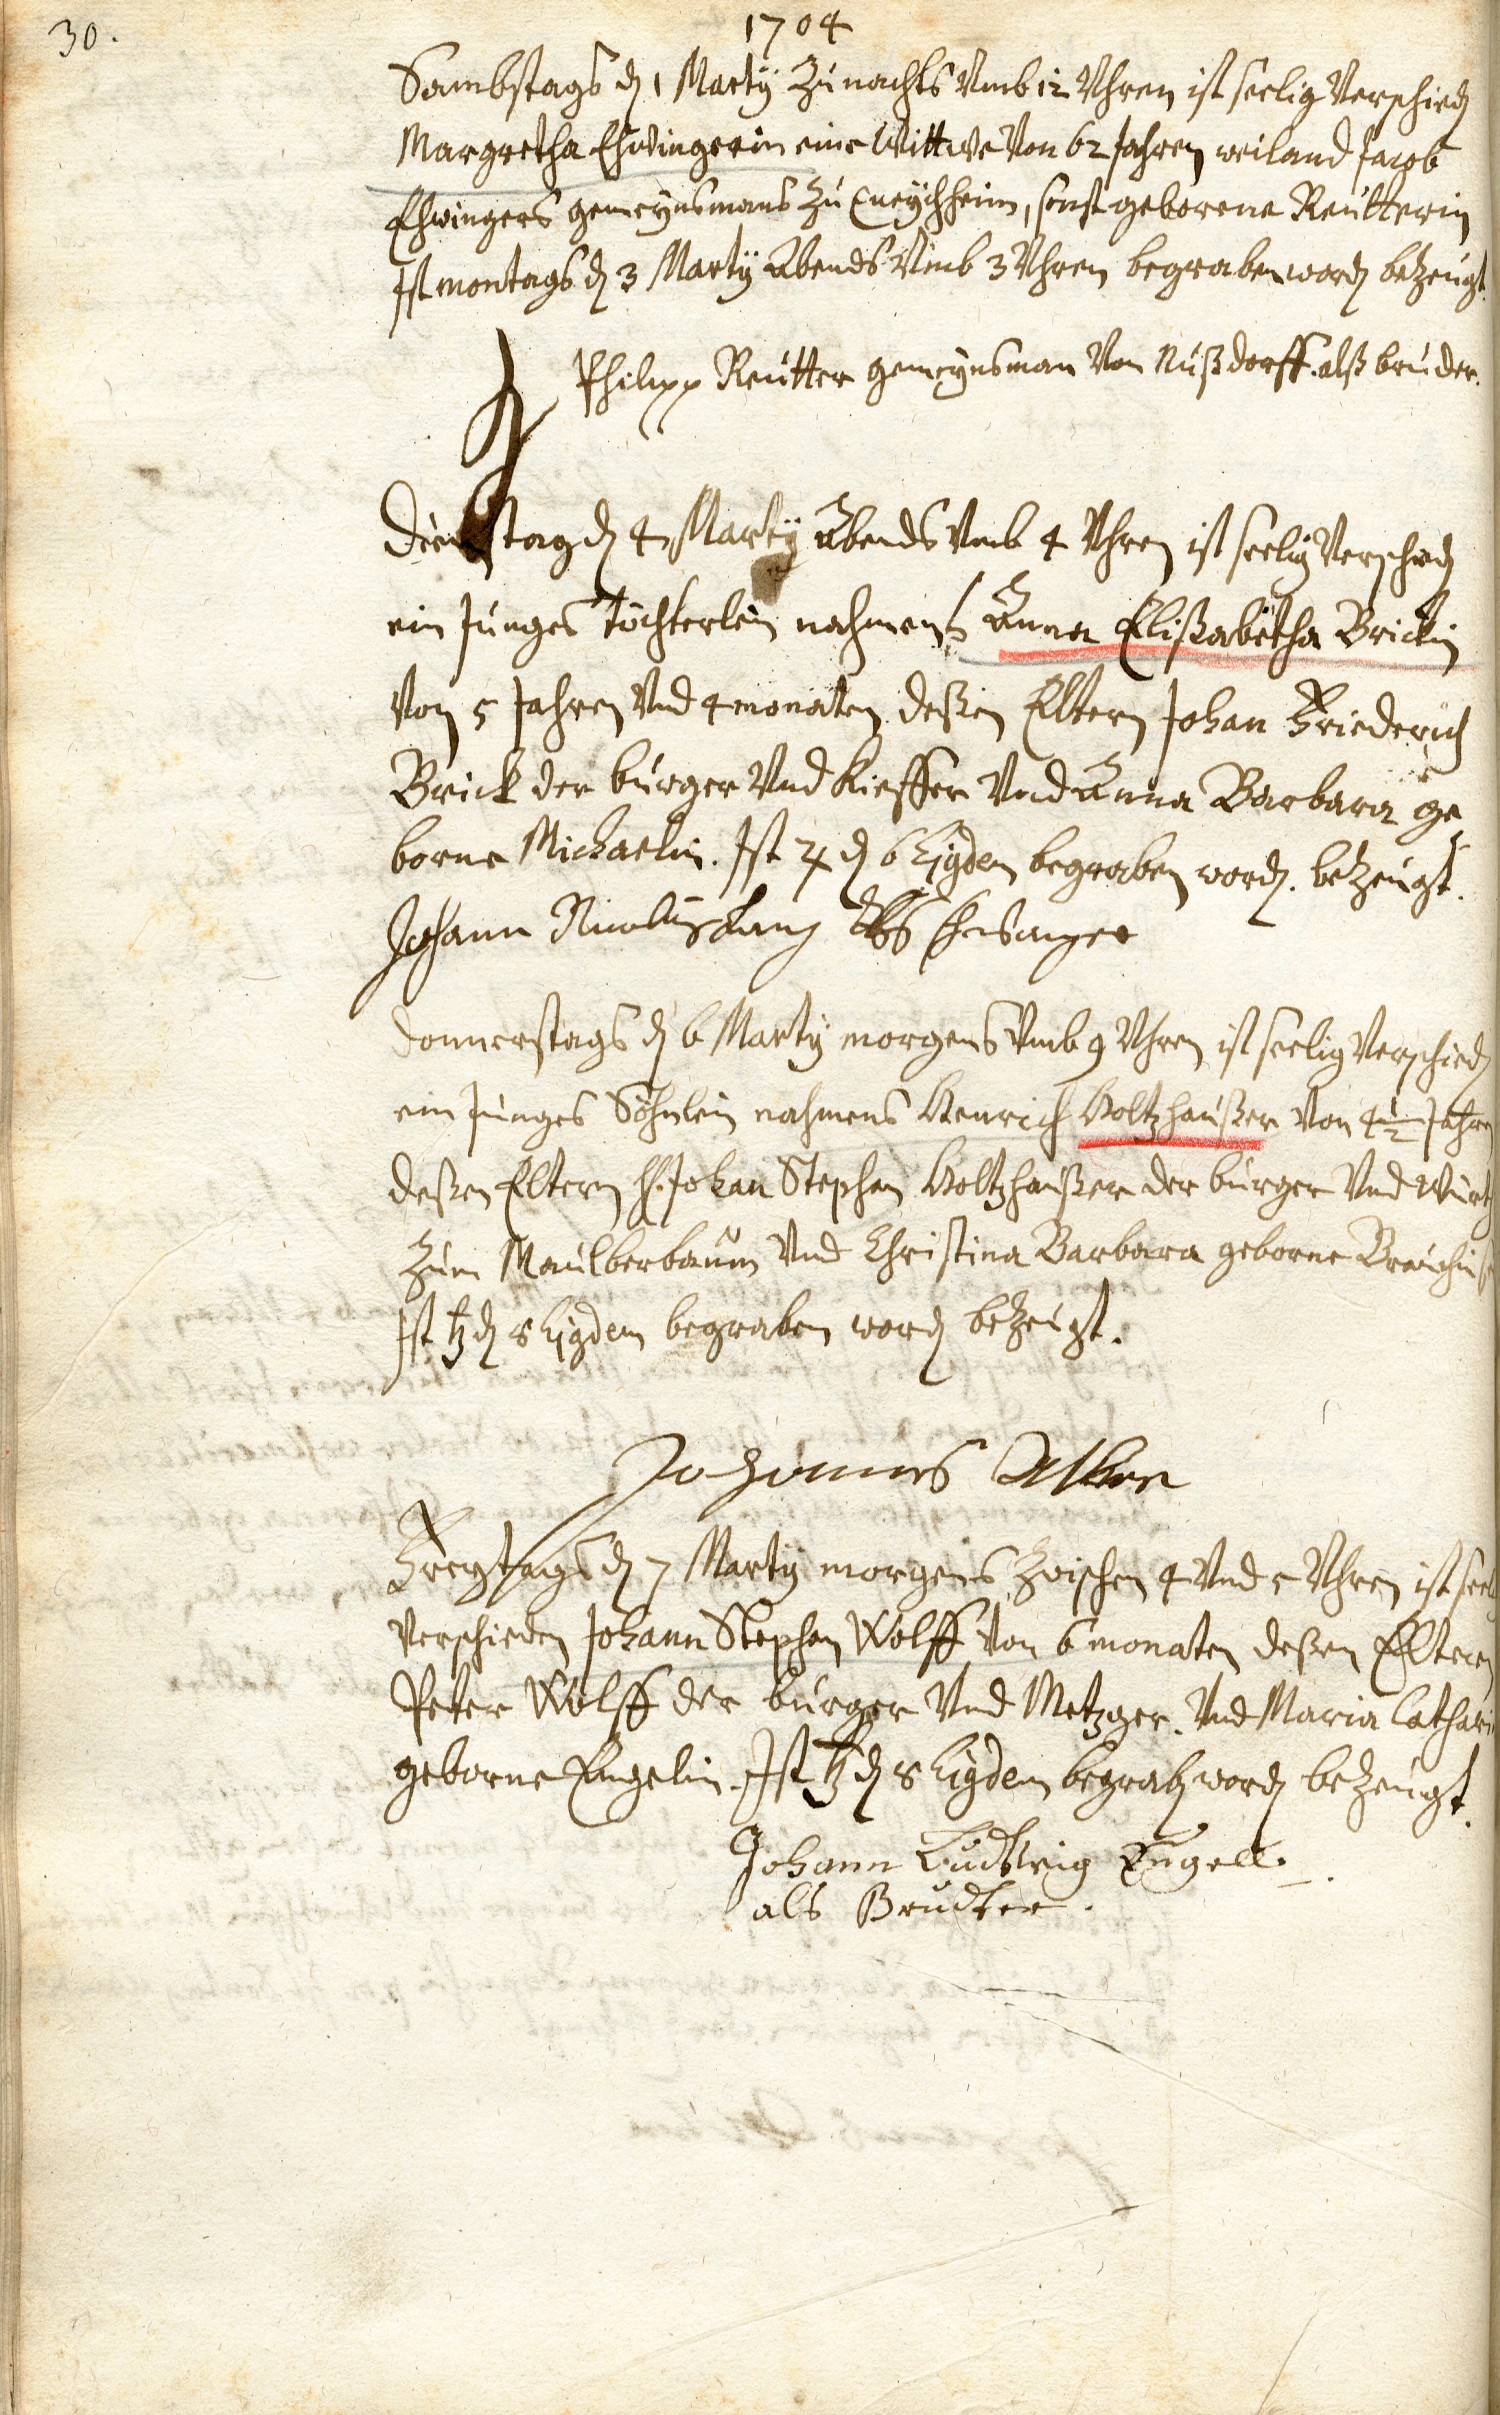 30.
1704
Sambstags d. 1 Marty Zu nachts Umb 12 Uhren ist seelig Verschied.
Margretha Ehwingerin eine Wittwe Von 62 Jahren weiland Jacob
Ehwingers gemeynsmans Zu, sonst geborene Reutterin
Ist montags d. 3 Marty Abends Umb 3 Uhren begraben word. bezeugt.
Philipp Reutter gemeynsman Von Nußdorff. alß bruder.
Dienstag d. 4 Marty Abends Umb 4 Uhren ist seelig Verschied.
ein Junges töchterlein nahmens Anna Elißabetha Brickin
Von 5 Jahren Und 4 monaten deßen Eltern Johan Friederich
Brick der burger Und Kieffer Und Anna Barbara ge
borne Michaelin. Ist ♃ d. 6 Eijdem begraben word. bezeugt.
Johann Nicolus Lang als
Donnerstags d. 6 Marty morgens Umb 9 Uhren ist seelig Verschied.
ein Junges Söhnlein nahmens Henrich Holtzhaußer Von 4½ Jahre
deßen Eltern H. Johan Stephan Holtzhaußer der burger Und Würt
Zum Maulberbaum Und Christina Barbara geborne
Ist ♄ d. 8 Eijdem begraben word. bezeugt.
Johannes
Freytags d. 7 Marty morgens Zwischen 4 Und 5 Uhren ist seel
Verschieden Johann Stephan Wolff Von 6 monaten deßen Eltern
Peter Wolff der burger Und Metzger. Und Maria Cathari
geborne Engelin. Ist ♄ d. 8 Eijdem begrab. word. bezeugt.
Johann Ludwig Engell.
als Brudter.